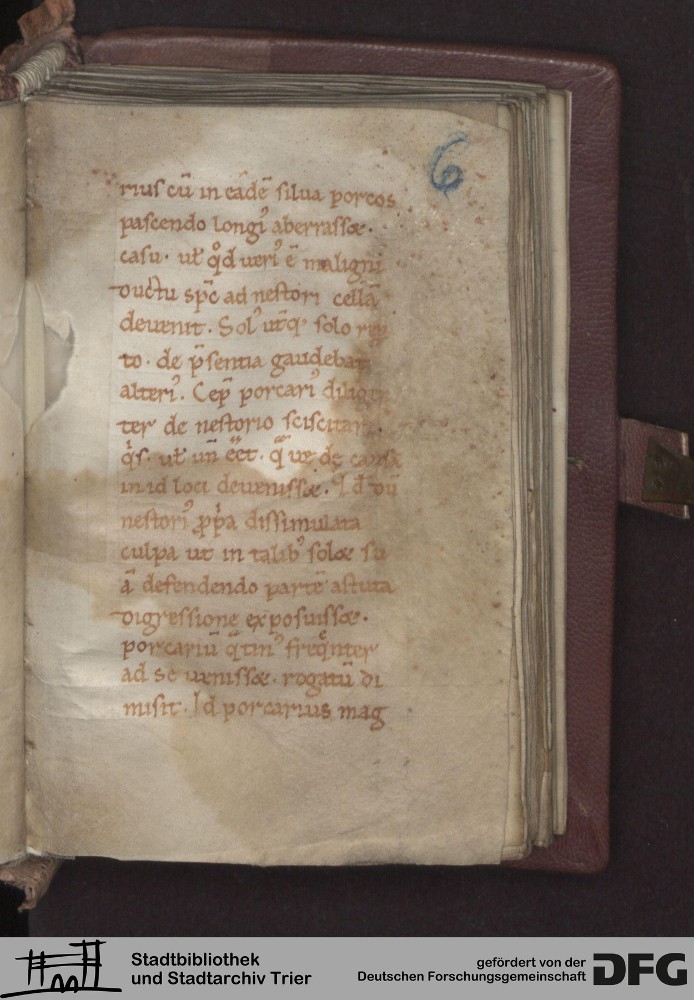 6
rius cū in eadē silua porcos
pascendo longiꝰ aberrassæ.
casu. ut̄ qͦd ueriꝰ ē maligni
ductu sp̄c ad nestori cellā
deuenit. Solꝰ
solo
to. de p̄sentia gaudebat
alteriꝰ. Cep̄ porcariꝰ
ter de nestorio
qͥs. ut̄ un̄ eēt. de
in id loci deuenissæ. Id dū
nestoriꝰ ꝓpͥa dissimulata
culpa ut in talibꝰ solæ su
ā defendendo partē astuta
digressione exposuissæ.
porcariū q̄tinꝰ freq̄nter
ad se uenissæ. rogatū di
misit. Id porcarius mag
Stadtbibliothek
und Stadtarchiv Trier
gefördert von der
Deutschen Forschungsgemeinschaft
DFG